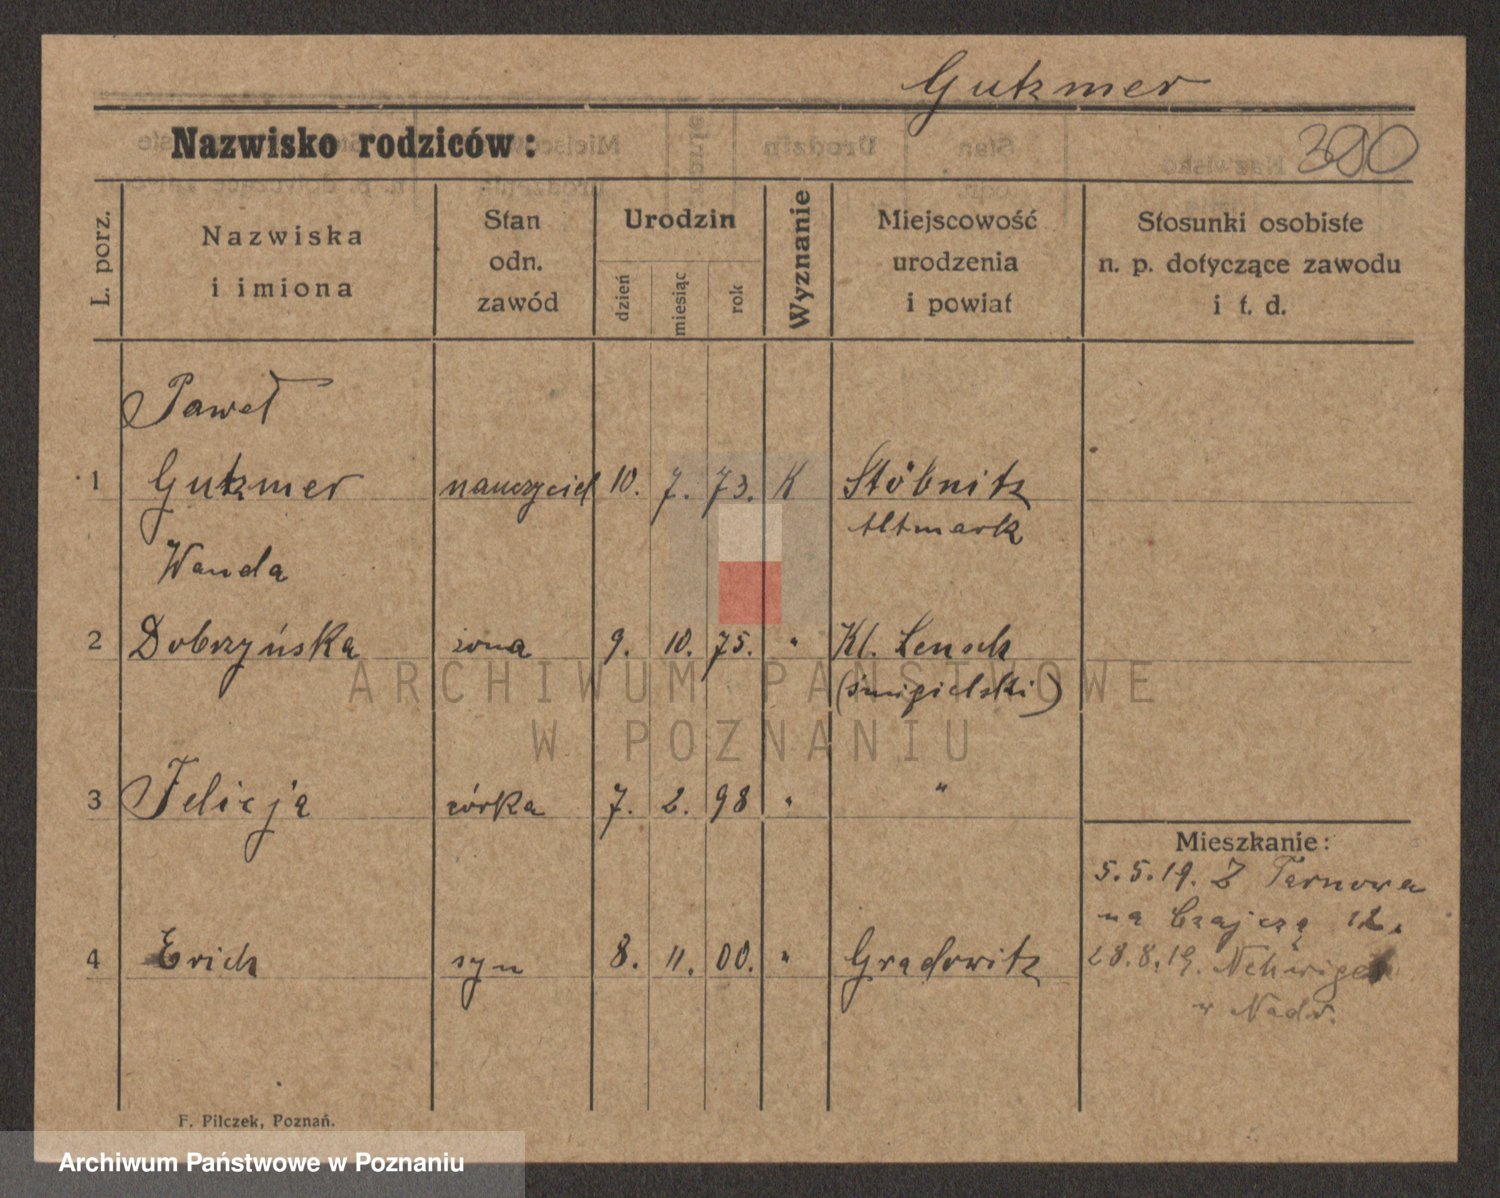 Gutzmer
Nazwisko rodziców:
390
L. porz.
Nazwiska
i imiona
Stan
odn.
zawód
Urodzin
dzień
miesiąc
rok
Wyznanie
Miejscowość
urodzenia
i powiat
Stosunki osobiste
n. p. dotyczące zawodu
i t. d.
Paweł
1 Gutzmer nauczyciel 10. 7. 73. K Stöbnitz
Altmark
Wanda
2 Dobrzyńska żona 9. 10. 75. " Kl. Lensch
(śmigielski)
3 Felicja córka 7. 2. 98 " "
Mieszkanie:
5.5.19. Z Tarnowa
na Czajczą 12.
4 Erich syn 8. 11. 00. " Gradowitz
28.8.19.
w Nadr.
F. Pilczek, Poznań.
ARCHIWUM PAŃSTWOWE
W POZNANIU
Archiwum Państwowe w Poznaniu